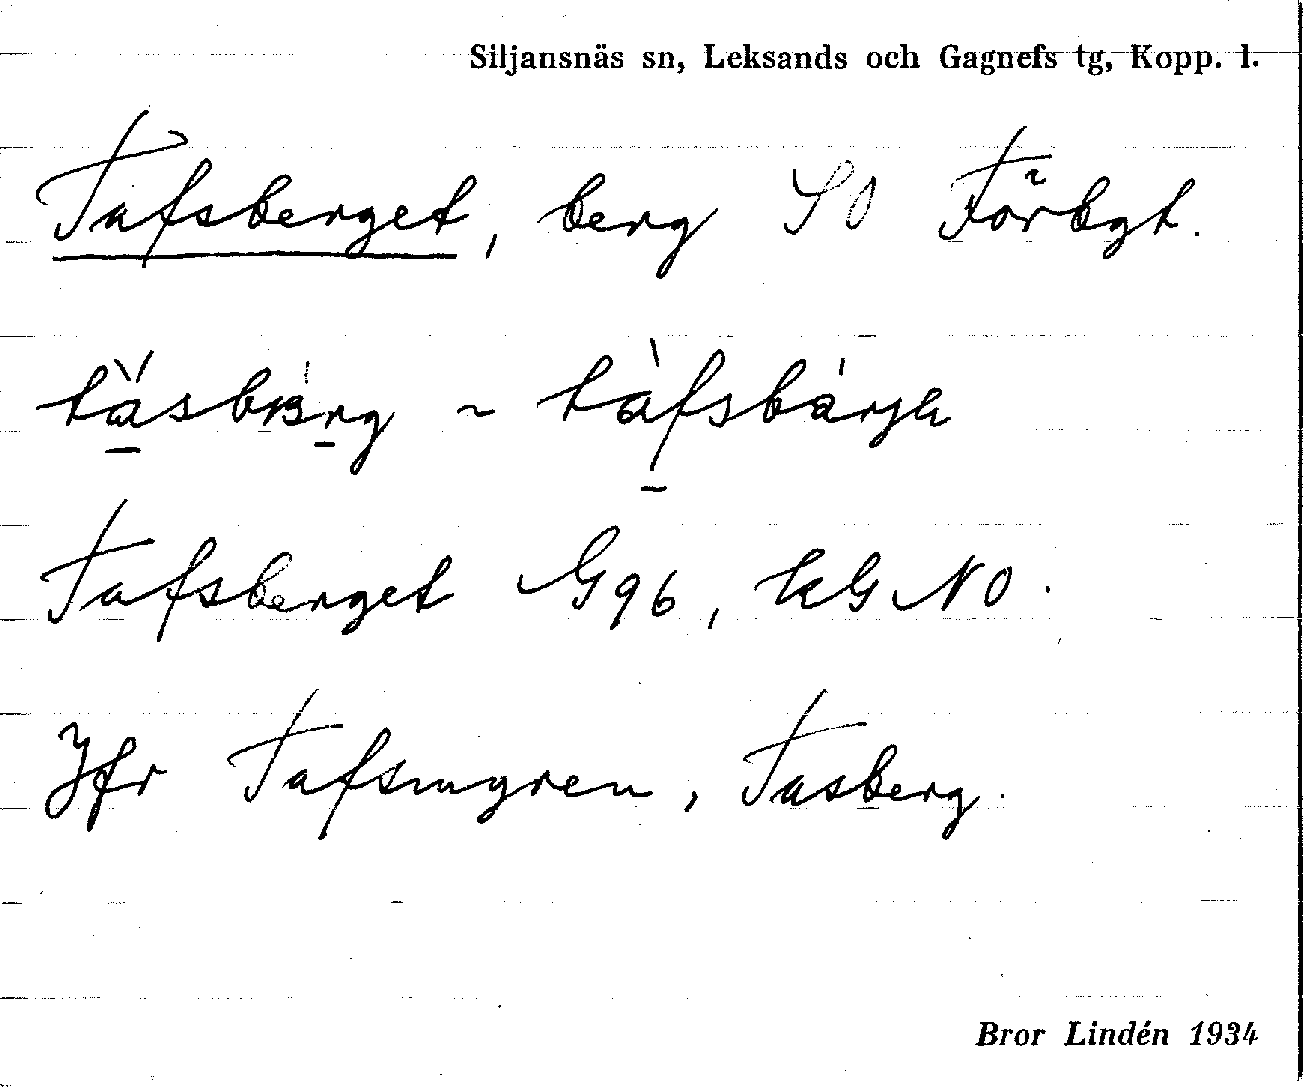 Siljansnäs sn, Leksands och Gagnefs tg, Kopp. l.
Tafsberget, berg SO Förbgt.
~ tàfsbárje
Tafsberget G96, kG NO.
Jfr Tafsmyren, Tasberg.
Bror Lindén 1934